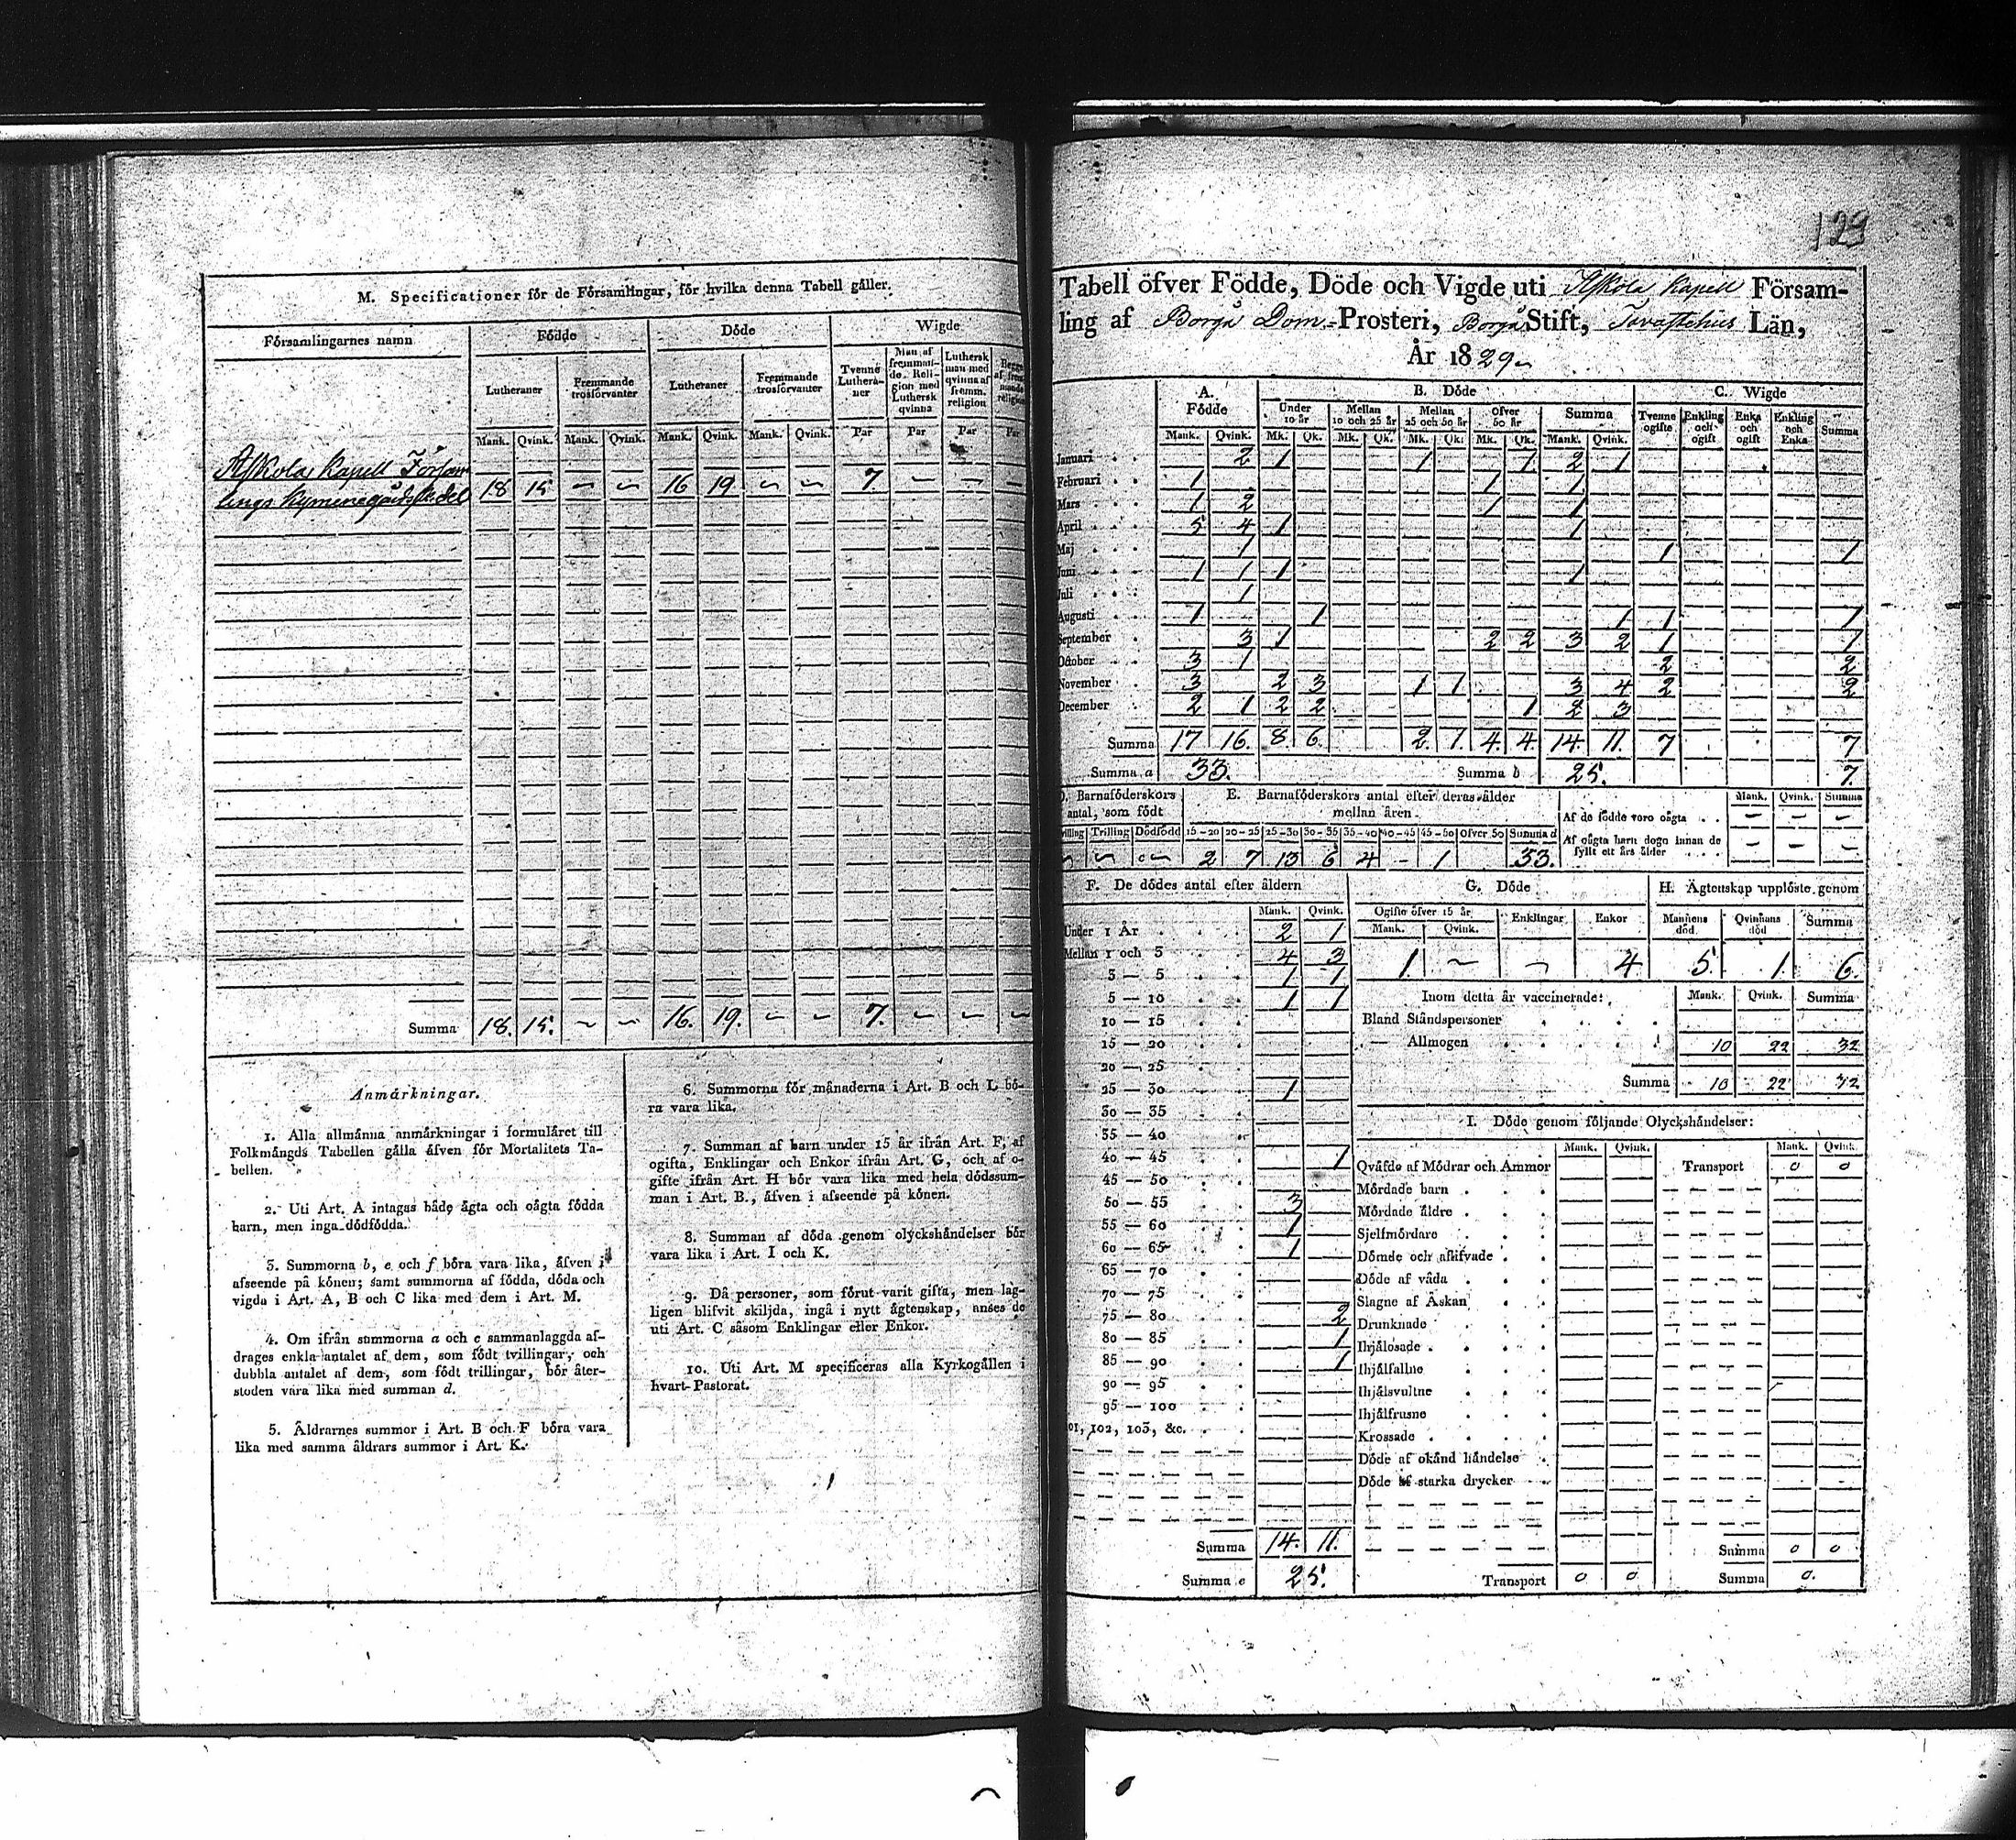 M. Specificationer för de Församlingar, för hvilka denna Tabell gäller.
Församlingarnes namn
Födde
Döde
Wigde
Lutheraner
Fremmande trosförvanter
Lutheraner
Fremmande trosförvanter
Tvenne Luthera-ner
Man af fremman-de Reli-gion med Luthersk qvinna
Luthersk man med qvinna af fremm. religion
Mank. Qvink. Mank. Qvink. Mank. Qvink. Mank. Qvink. Par Par Par Par
Askola Kapell Försam
lings Kymenegårds del 18 15 ~ ~ 16 19 ~ ~ 7. — — —
Summa 18. 15. ~ ~ 16. 19. ~ ~ 7. ~ ~ ~
Anmärkningar.
1. Alla allmänna anmärkningar i formuläret till
Folkmängds Tabellen gälla äfven för Mortalitets Ta-
bellen.
2. Uti Art. A intages både ägta och oägta födda
barn, men inga dödfödda.
3. Summorna b, e och f böra vara lika, äfven i
afseende på könen; samt summorna af födda, döda och
vigda i Art. A, B och C lika med dem i Art. M.
4. Om ifrån summorna a och c sammanlaggda af-
drages enkla antalet af dem, som födt tvillingar, och
dubbla antalet af dem, som födt trillingar, bör åter-
stoden vara lika med summan d.
5. Åldrarnes summor i Art. B och F böra vara
lika med samma åldrars summor i Art. K.
6. Summorna för månaderna i Art. B och L bö-
ra vara lika.
7. Summan af barn under 15 år ifrån Art. F, af
ogifta, Enklingar och Enkor ifrån Art. G, och af o-
gifte ifrån Art. H bör vara lika med hela dödssum-
man i Art. B., äfven i afseende på könen.
8. Summan af döda genom olyckshändelser bör
vara lika i Art. I och K.
9. Då personer, som förut varit gifta, men lag-
ligen blifvit skiljda, ingå i nytt ägtenskap, anses de
uti Art. C såsom Enklingar eller Enkor.
10. Uti Art. M specificeras alla Kyrkogällen i
hvart Pastorat.
129
Tabell öfver Födde, Döde och Vigde uti Askola Kapell Församling
ling af Borgå Dom-Prosteri, Borgå Stift, Tavastehus Län,
År 1829
A. Födde
B. Döde
C. Wigde
Under 10 år
Mellan 10 och 25 år
Mellan 25 och 50 år
Öfver 50 år
Summa
Tvenne ogifte
Enkling och ogift
Enka och ogift
Enkling och Enka
Summa
Mank. Qvink. Mk. Qk. Mk. Qk. Mk. Qk. Mk. Qk. Mank. Qvink.
Januari 2 1 1 1 2 1
Februari 1 1 1
Mars 1 2 1 1
April 5 4 1 1
Maj 1 1 1
Juni 1 1 1 1
Juli 1
Augusti 1 1 1 1 1
September 3 1 2 2 3 2 1 1
October 3 1 2 2
November 3 2 3 1 1 3 4 2 2
December 2 1 2 2 1 2 3
Summa 17 16. 8. 6. 2. 1. 4. 4. 14. 11. 7 7
Summa a 33. Summa b 25. 7.
D. Barnaföderskors antal, som födt
E. Barnaföderskors antal efter deras ålder mellan åren.
Trilling Dödfödd 15—20 20—25 25—30 30—35 35—40 40—45 45—50 Öfver 50 Summa d
~ ~ ~ 2 7 13 6 4 - 1 33.
Mank. Qvink. Summa
Af de födde voro oägta — — —
Af oägta barn dogo innan de fyllt ett års ålder — — —
F. De dödes antal efter åldern
Mank. Qvink.
Under 1 År 2 1
Mellan 1 och 3 4 3
3 — 5 1 1
5 — 10 1 1
10 — 15
15 — 20
20 — 25
25 — 30 1
30 — 35
35 — 40
40 — 45 1
45 — 50
50 — 55 3
55 — 60 1
60 — 65 1
65 — 70
70 — 75
75 — 80 2
80 — 85 1
85 — 90 1
90 — 95
95 — 100
101, 102, 103, &c.
Summa 14. 11.
Summa e 25.
G. Döde
Ogifte öfver 15 år
Enklingar
Enkor
Mank. Qvink.
1 ~ ~ 4
H. Ägtenskap upplöste genom
Mannens död
Qvinnans död
Summa
5. 1. 6.
Inom detta år vaccinerade: Mank. Qvink. Summa
Bland Ståndspersoner
— Allmogen 10 22 32
Summa 10 22 32
I. Döde genom följande Olyckshändelser:
Mank. Qvink. Mank. Qvink.
Qväfde af Mödrar och Ammor Transport 0 0
Mördade barn
Mördade äldre
Sjelfmördare
Dömde och aflifvade
Döde af våda
Slagne af Åskan
Drunknade
Ihjälosade
Ihjälfallne
Ihjälsvultne
Ihjälfrusne
Krossade
Döde af okänd händelse
Döde af starka drycker
Summa 0 0
Transport 0 0 Summa 0.